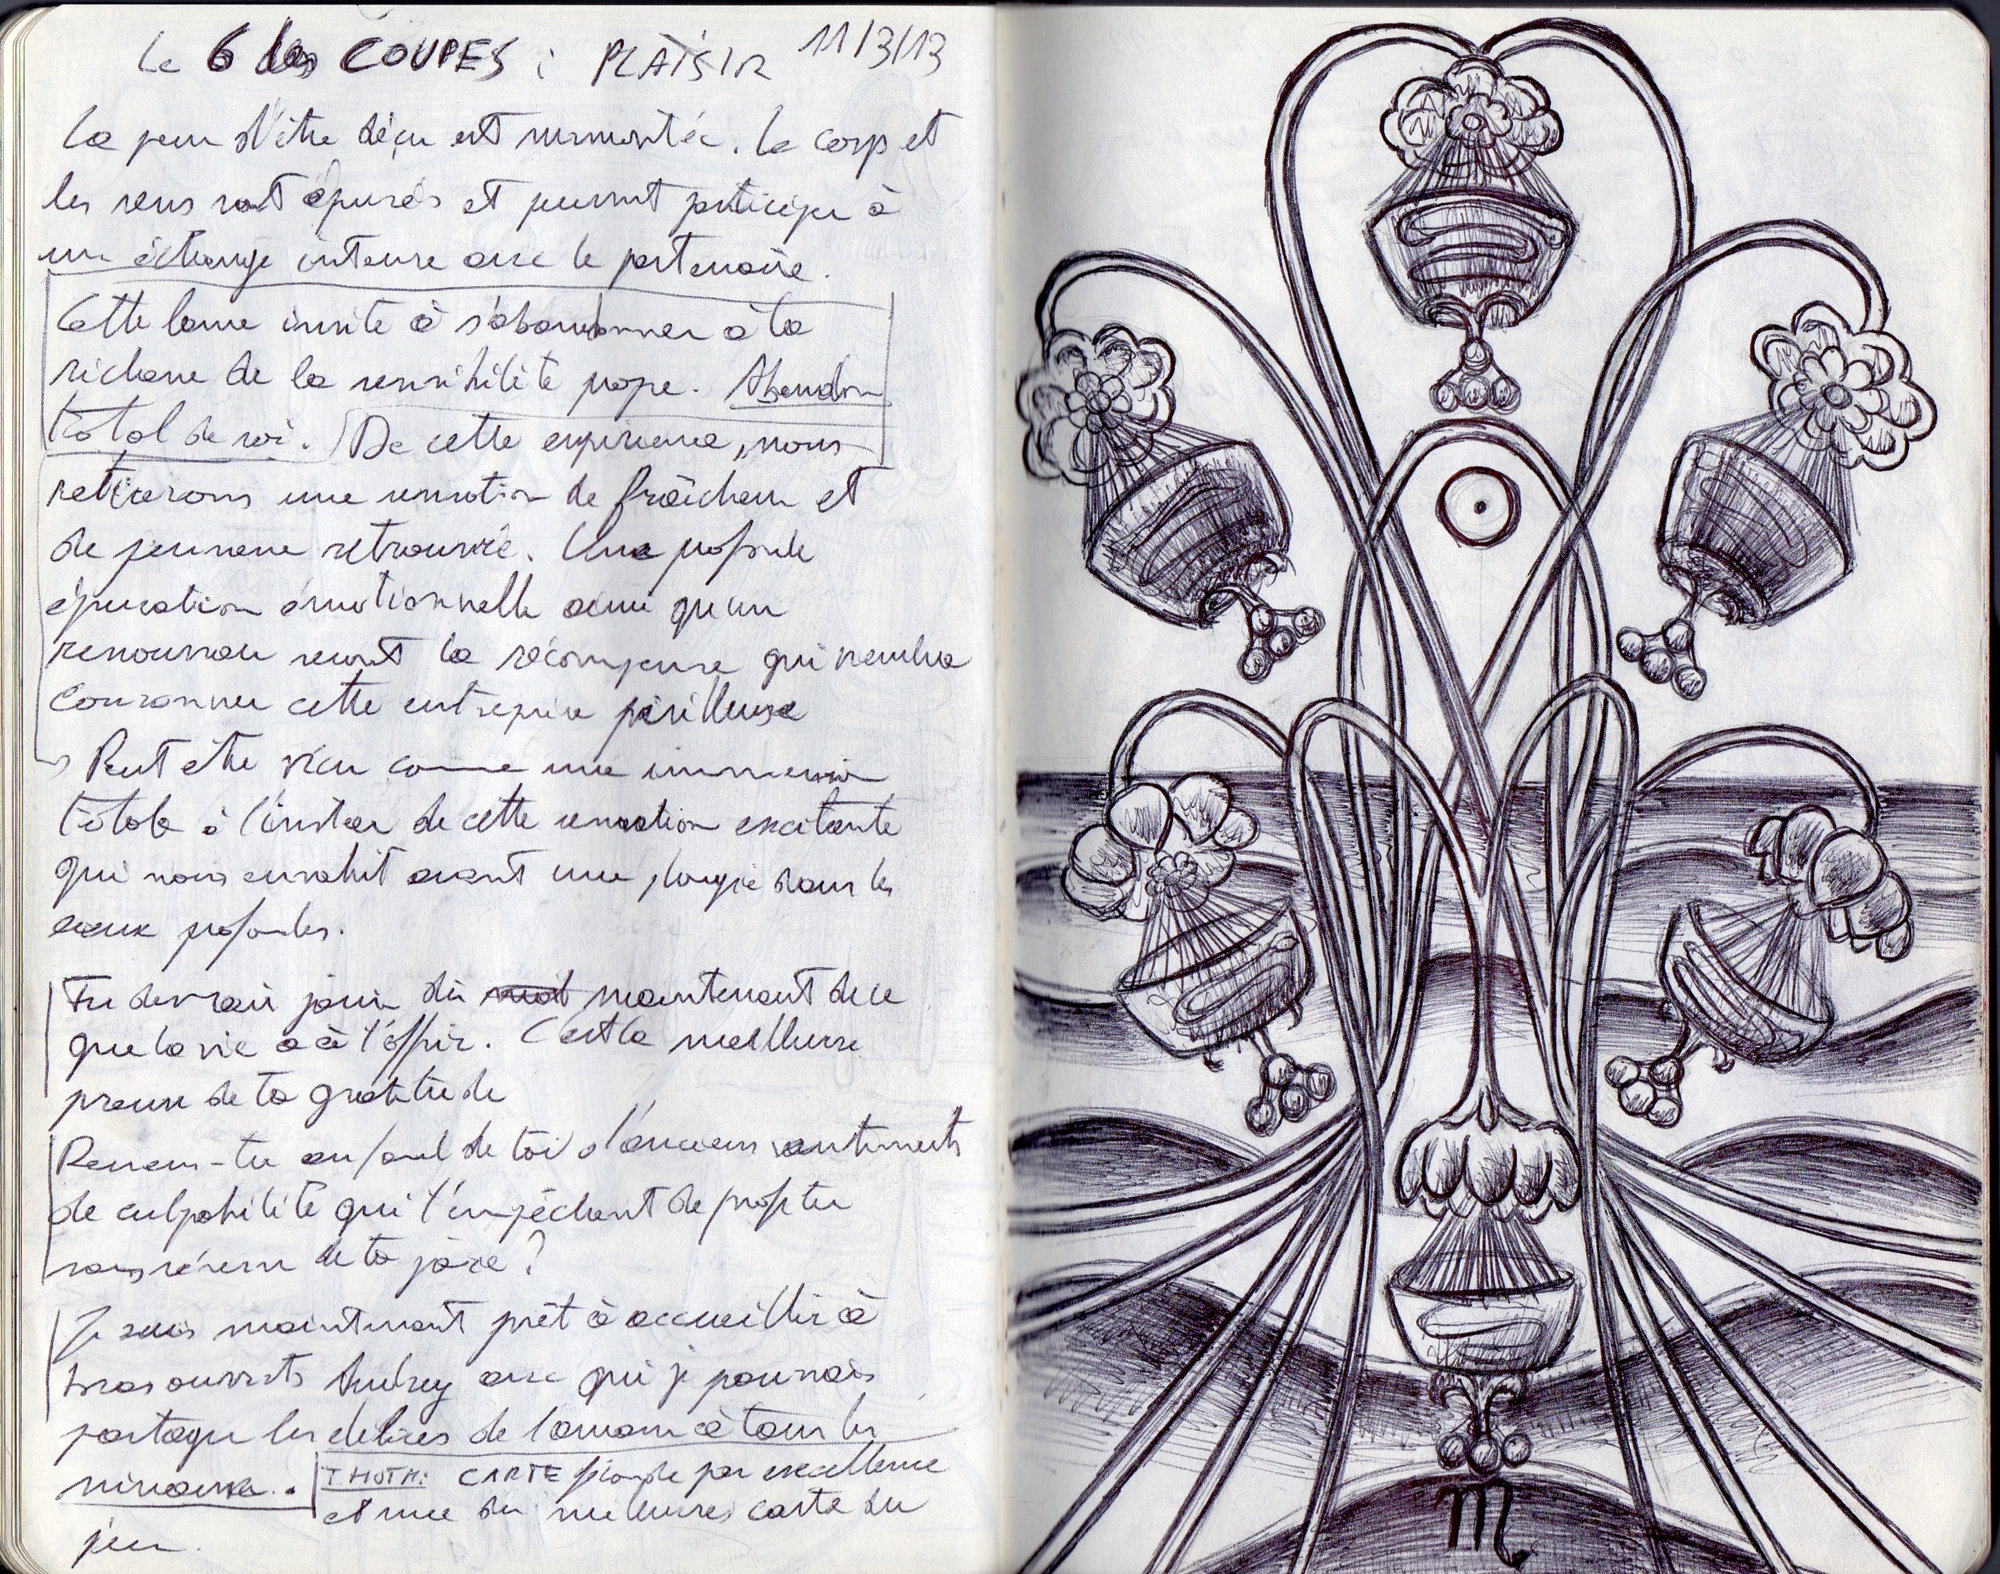 Le 6 des COUPES : PLAISIR 11/3/13
La peur d'être déçu est surmontée. Le corps et
les sens sont épurés et peuvent participer à
un échange intense avec le partenaire.
Cette lame invite à s'abandonner à la
richesse de la sensibilité pure. Abandon
total de soi. De cette expérience, nous
retirerons une sensation de fraîcheur et
de jeunesse retrouvée. Une profonde
épuration émotionnelle ainsi qu'un
renouveau seront la récompense qui viendra
couronner cette entreprise périlleuse
Peut être vécu comme une immersion
totale à l'instar de cette sensation excitante
qui nous envahit avant une plongée dans les
eaux profondes.
Tu devrais jouir dès maintenant de ce
que la vie a à t'offrir. C'est la meilleure
preuve de ta gratitude
Ressens-tu au fond de toi d'anciens sentiments
de culpabilité qui t'empêchent de profiter
sans réserve de ta joie ?
Je suis maintenant prêt à accueillir à
bras ouverts Audrey avec qui je pourrais
partager les délices de l'amour à tous les
niveaux.
THOTH: CARTE féconde par excellence
et une des meilleures carte du
jeu.
♏